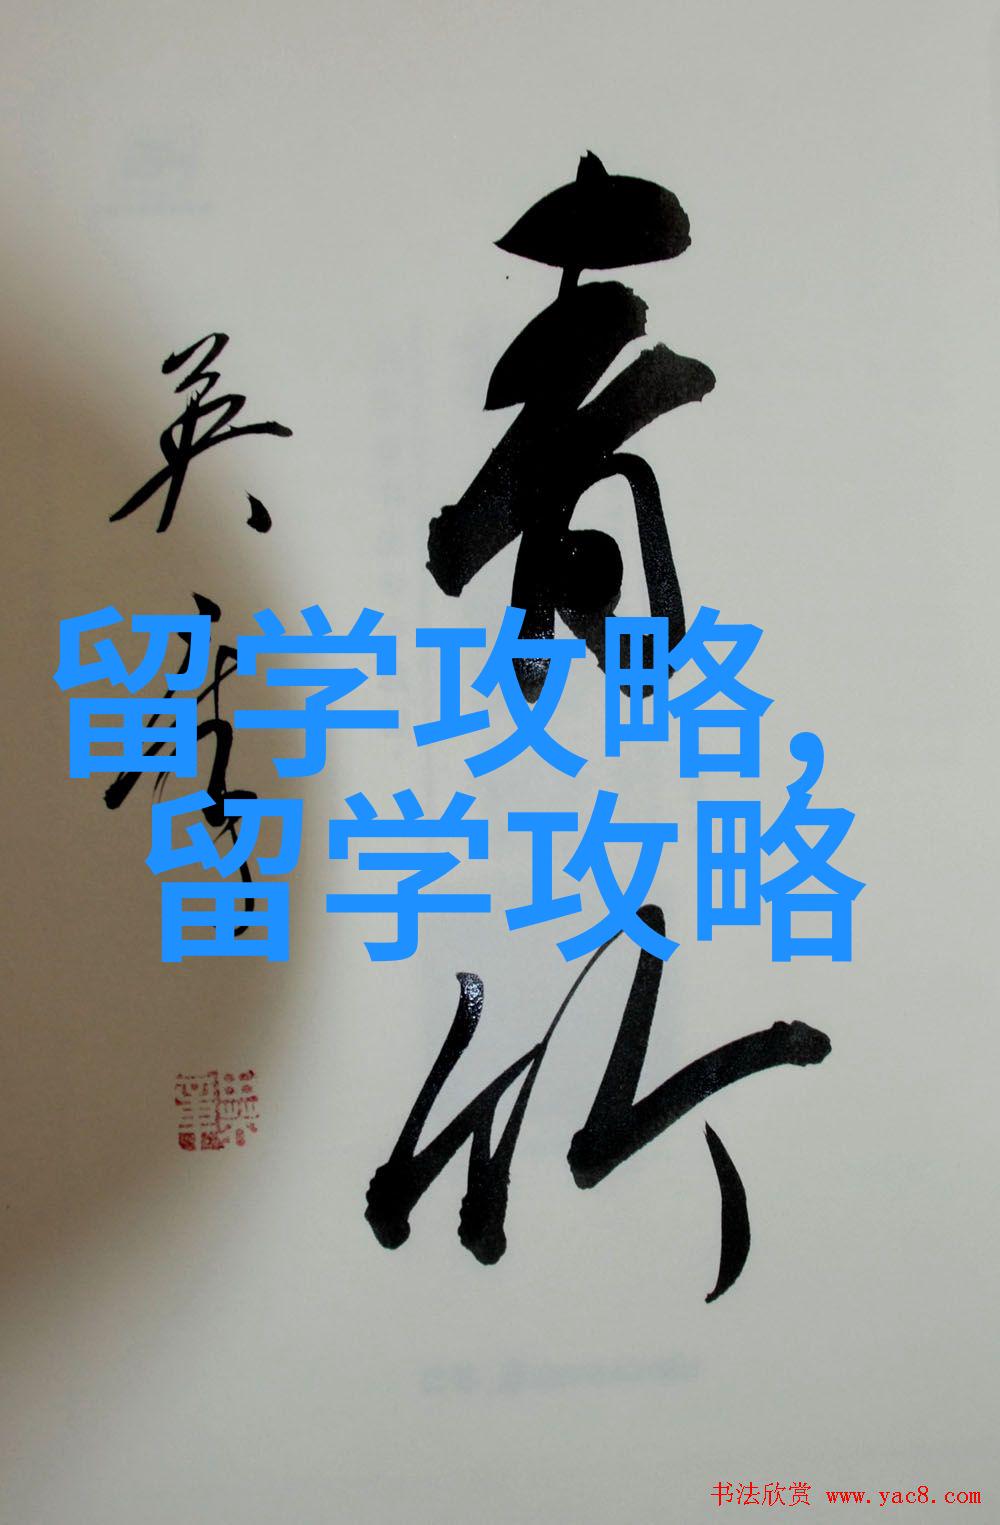 青竹
英
留学攻略,
留学攻略
书法欣赏 www.yac8.com